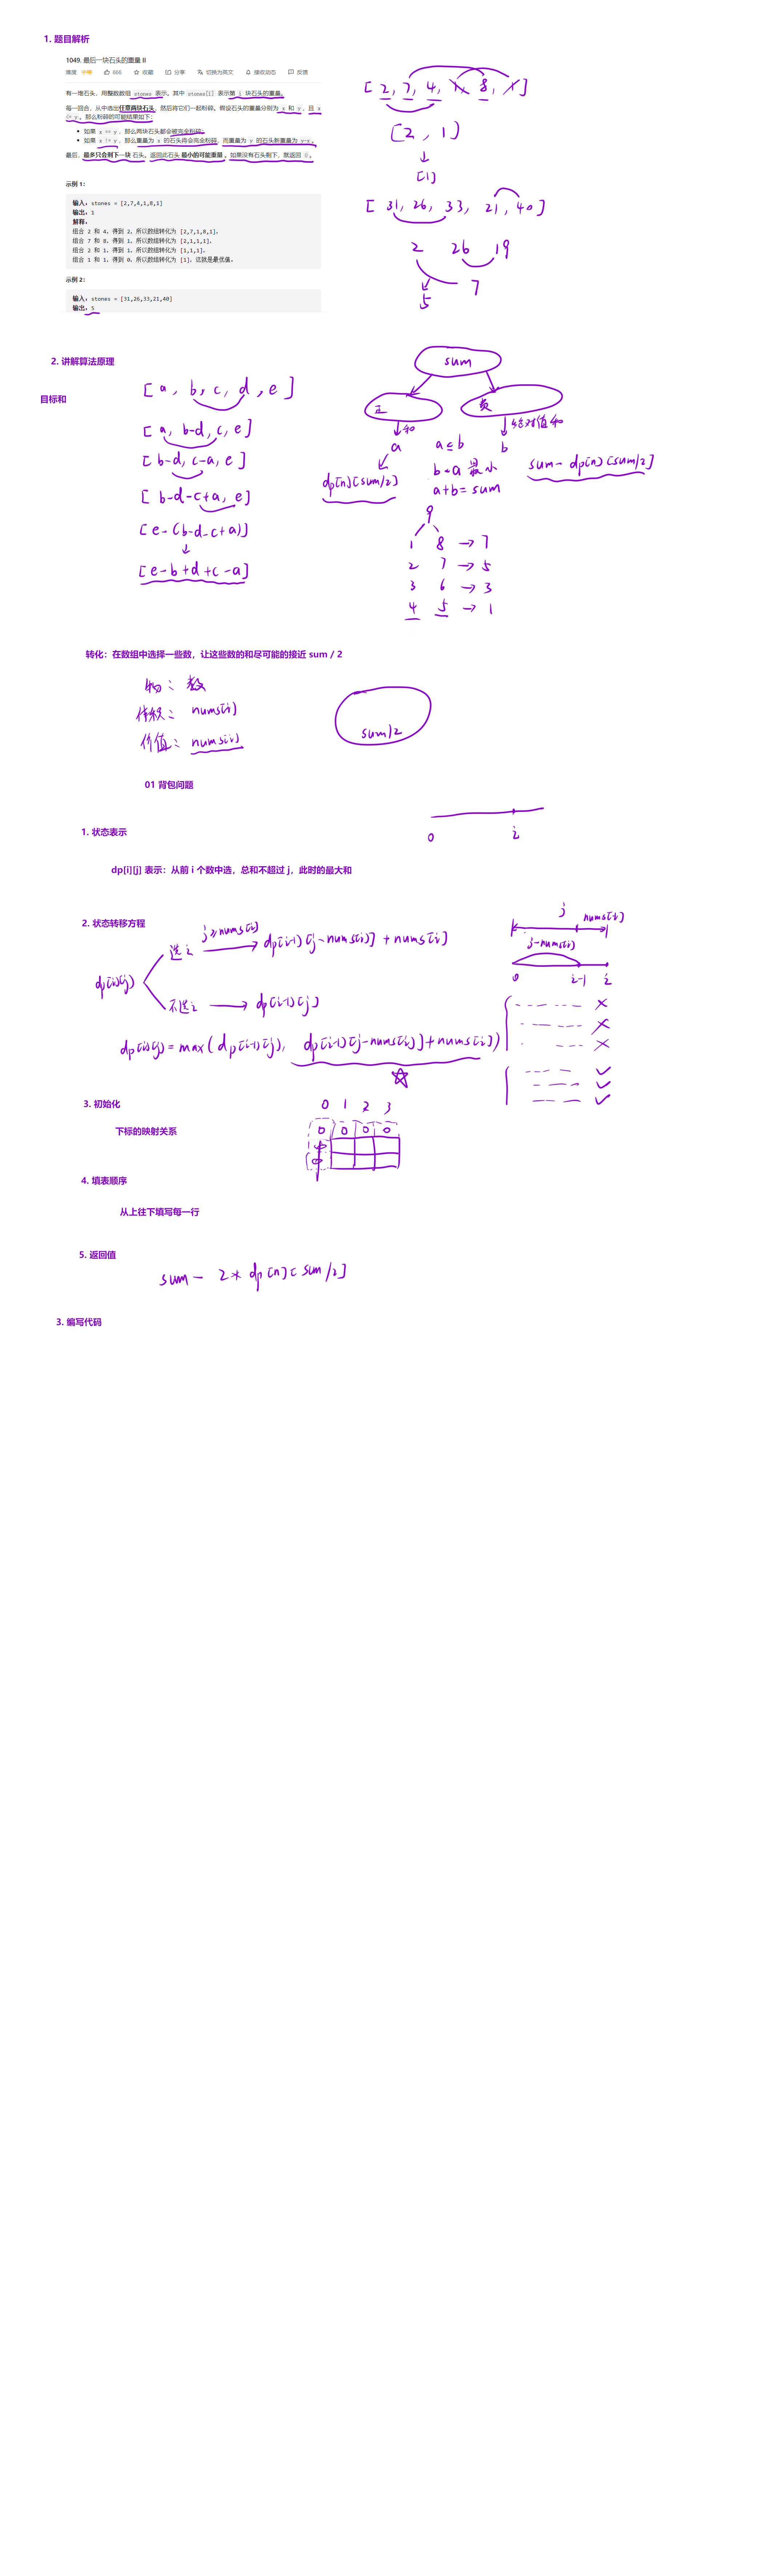 1. 题目解析
1049. 最后一块石头的重量 II
难度 中等 666 收藏 分享 切换为英文 接收动态 反馈
有一堆石头，用整数数组 stones 表示。其中 stones[i] 表示第 i 块石头的重量。
每一回合，从中选出任意两块石头，然后将它们一起粉碎。假设石头的重量分别为 x 和 y，且 x
<= y。那么粉碎的可能结果如下：
如果 x == y，那么两块石头都会被完全粉碎；
如果 x != y，那么重量为 x 的石头将会完全粉碎，而重量为 y 的石头新重量为 y-x。
最后，最多只会剩下一块 石头。返回此石头 最小的可能重量 。如果没有石头剩下，就返回 0。
示例 1：
输入：stones = [2,7,4,1,8,1]
输出：1
解释：
组合 2 和 4，得到 2，所以数组转化为 [2,7,1,8,1]，
组合 7 和 8，得到 1，所以数组转化为 [2,1,1,1]，
组合 2 和 1，得到 1，所以数组转化为 [1,1,1]，
组合 1 和 1，得到 0，所以数组转化为 [1]，这就是最优值。
示例 2：
输入：stones = [31,26,33,21,40]
输出：5
[2, 7, 4, 1, 8, 1]
[2, 1]
[1]
[31, 26, 33, 21, 40]
2 26 19
7
5
2. 讲解算法原理
目标和
[a, b, c, d, e]
[a, b-d, c, e]
[b-d, c-a, e]
[b-d-c+a, e]
[e-(b-d-c+a)]
[e-b+d+c-a]
sum
正 负
和 绝对值和
a a≤b b
dp[n][sum/2] b-a 最小 sum - dp[n][sum/2]
a+b = sum
9
1 8 → 7
2 7 → 5
3 6 → 3
4 5 → 1
转化：在数组中选择一些数，让这些数的和尽可能的接近 sum / 2
物： 数
体积： nums[i]
价值： nums[i]
sum/2
01 背包问题
1. 状态表示
0 i
dp[i][j] 表示：从前 i 个数中选，总和不超过 j，此时的最大和
2. 状态转移方程
dp[i][j]
选 i j≥nums[i] dp[i-1][j-nums[i]] + nums[i]
不选 i dp[i-1][j]
dp[i][j] = max(dp[i-1][j], dp[i-1][j-nums[i]]+nums[i])
j nums[i]
j-nums[i]
0 i-1 i
3. 初始化
下标的映射关系
0 1 2 3
0 0 0 0
4. 填表顺序
从上往下填写每一行
5. 返回值
sum - 2* dp[n][sum/2]
3. 编写代码